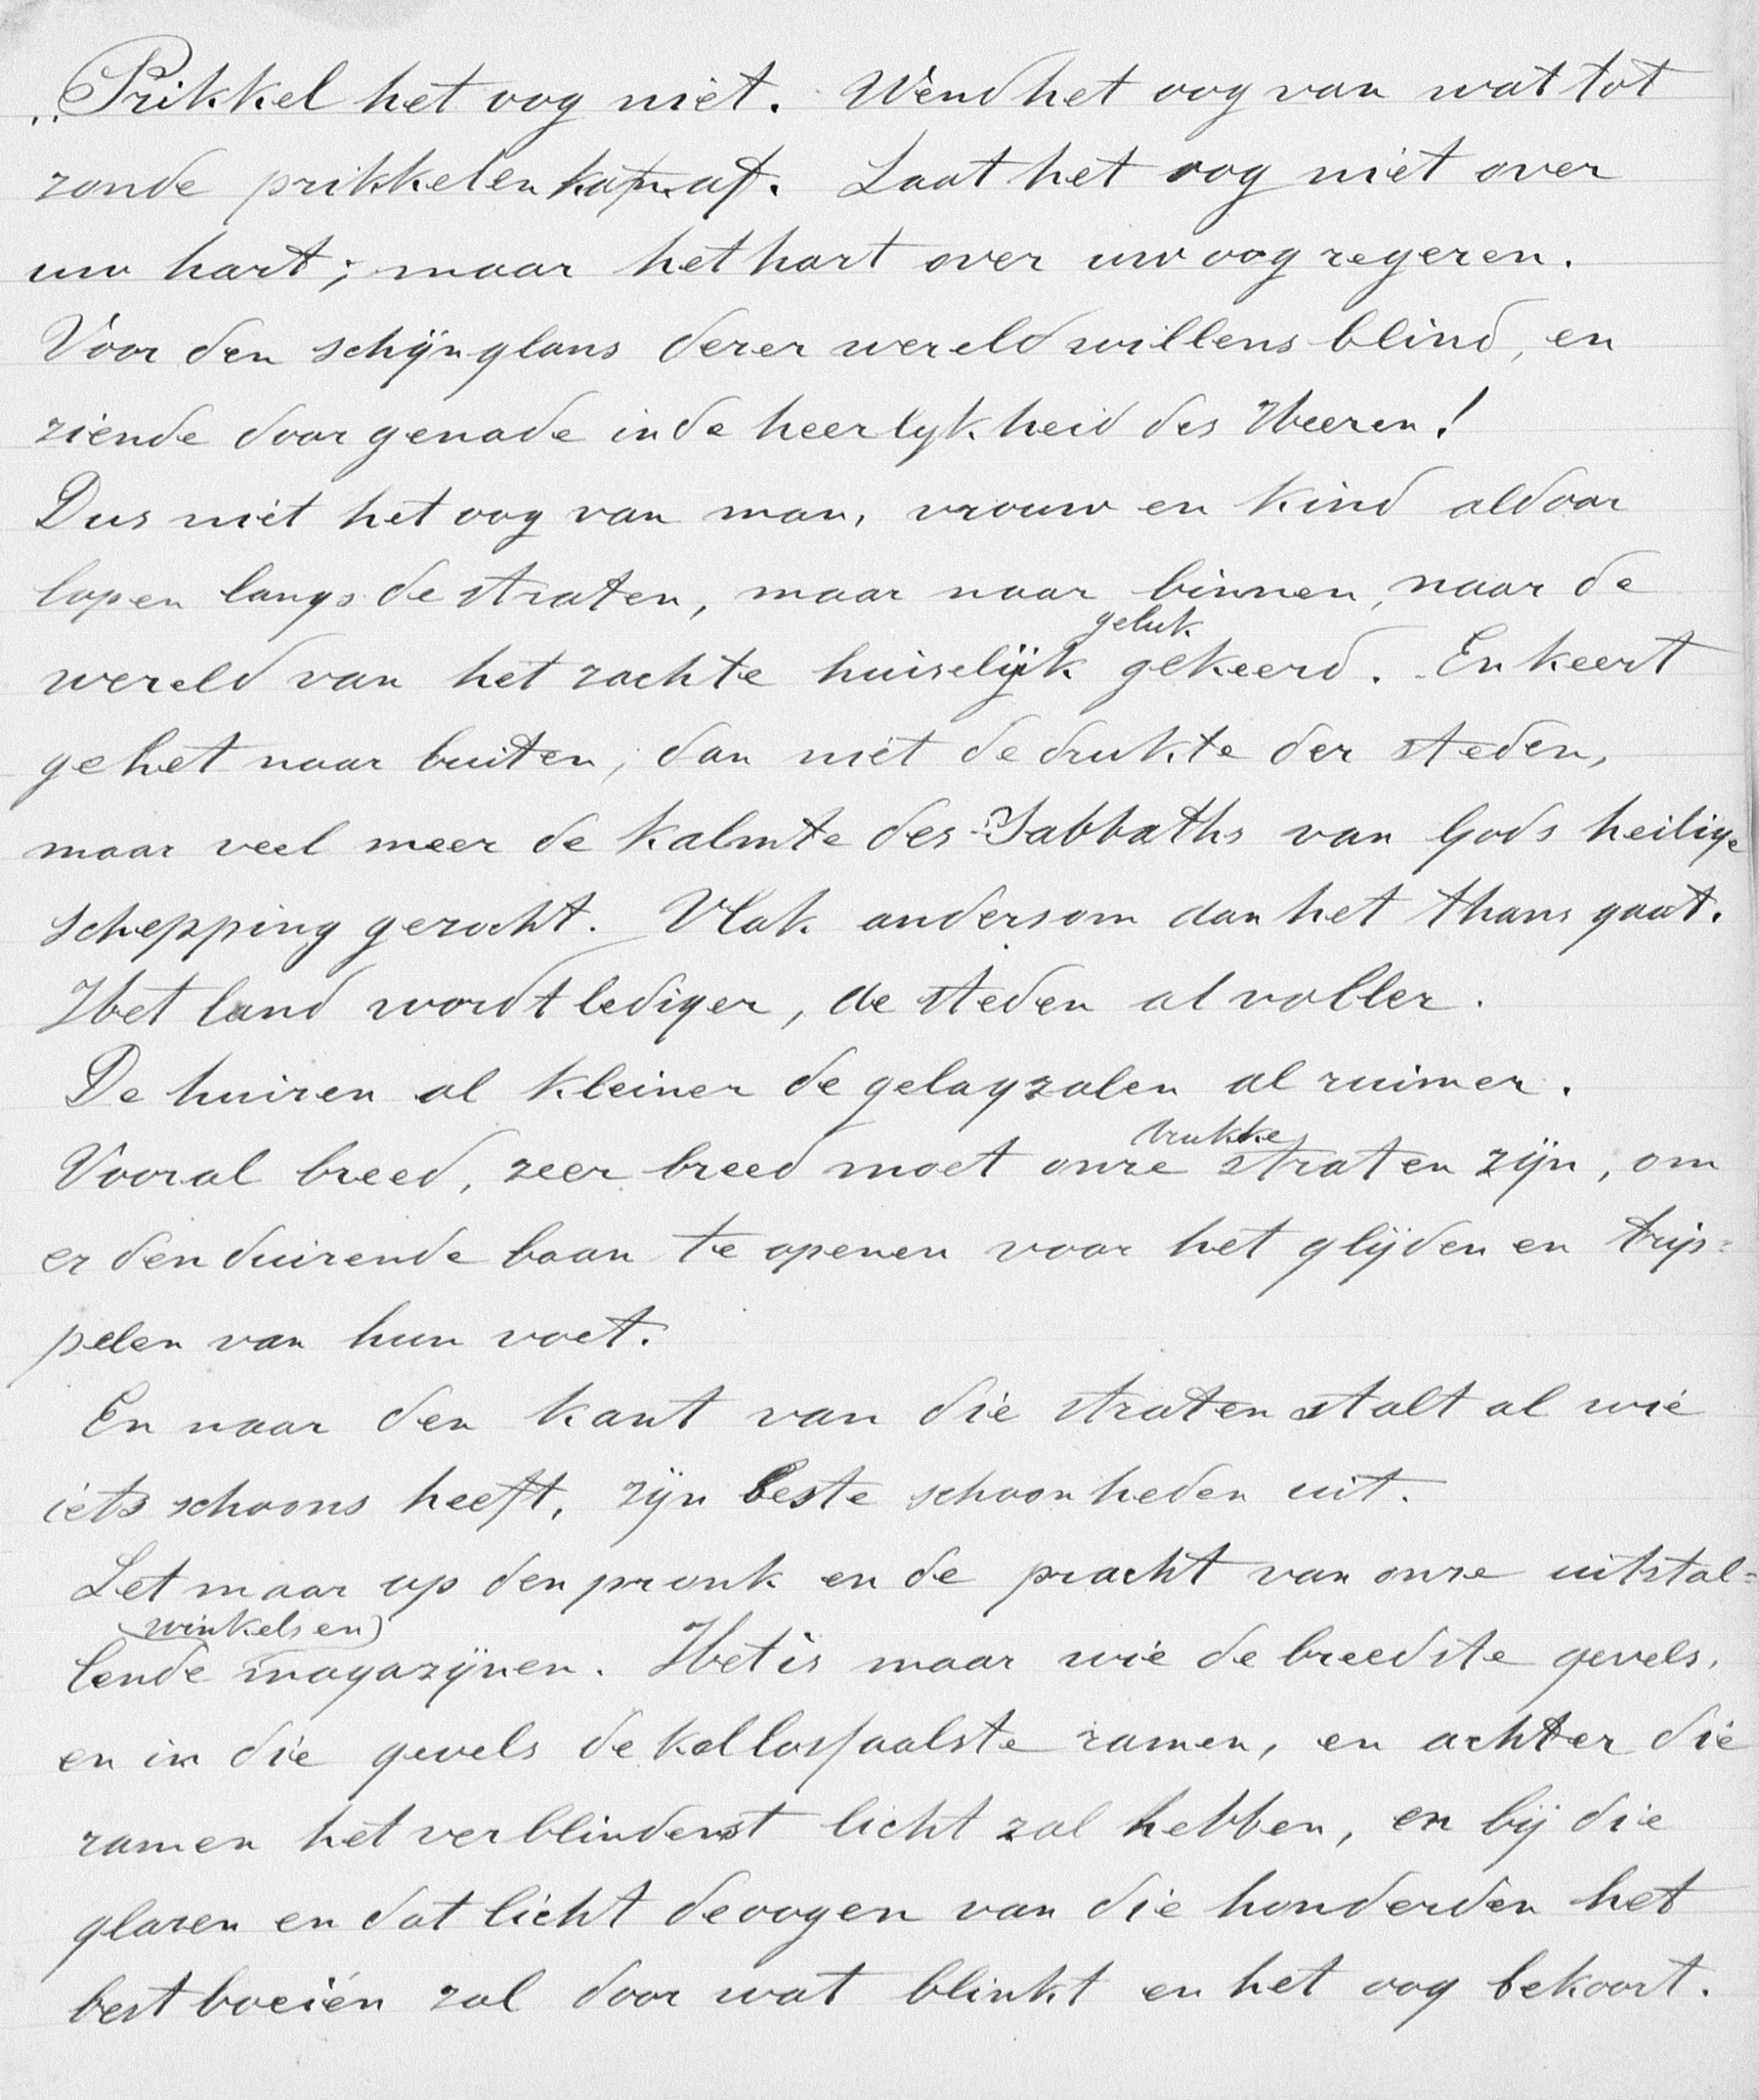 „Prikkel het oog niet. Wend het oog van wat tot
zonde prikkelen kan af. Laat het oog niet over
uw hart; maar het hart over uw oog regeren.
Voor den schijnglans derer wereld willens blind, en
ziende door genade in de heerlykheid des Heeren!
Dus niet het oog van man, vrouw en kind aldoor
lopen langs de straten, maar naar binnen, naar de
geluk
wereld van het zachte huiselijk gekeerd. En keert
ge het naar buiten, dan niet de drukte der steden,
maar veel meer de kalmte des Sabbaths van Gods heilige
schepping gezocht. Vlak andersom dan het thans gaat.
Het land wordt lediger, de steden al voller.
De huizen al kleiner de gelagzalen al ruimer.
drukke
Vooral breed, zeer breed moet onze straten zijn, om
er den duizende baan te openen voor het glijden en trip=
pelen van hun voet.
En naar den kant van die straten stalt al wie
iets schoons heeft, zijn beste schoonheden uit.
Let maar op den pronk en de pracht van onze uitstal=
winkels en)
lende magazijnen. Het is maar wie de breedste gevels,
en in die gevels de kollossaalste ramen, en achter die
ramen het verblindenst licht zal hebben, en bij die
glazen en dat licht de oogen van die honderden het
best boeién zal door wat blinkt en het oog bekoort.